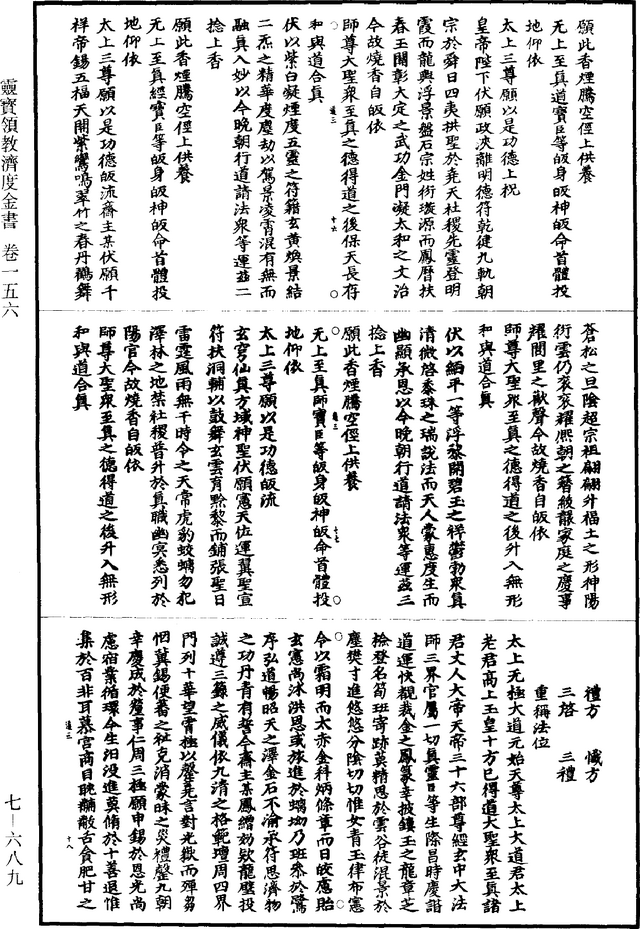 願此香煙騰空徑上供養
无上至真道寶臣等皈身皈神皈命首體投
地仰依
太上三尊願以是功德上祝
皇帝陛下伏願政決離明德符乾健九軌朝
宗於舜日四夷拱聖於堯天社稷先靈登明
霞而龍輿浮景盤石宗姓衍璇源而鳳曆扶
春玉關彰大定之武功金門凝太和之文治
今故燒香自皈依
師尊大聖衆至真之德得道之後保天長存
和與道合真
伏以紫白凝煙度五靈之符籍玄黃煥景結
二炁之精華度塵劫以駕景凌霄混有無而
融真入妙以今晚朝行道請法衆等運茲二
捻上香
願此香煙騰空徑上供養
无上至真經寶臣等皈身皈神皈命首體投
地仰依
太上三尊願以是功德皈流齋主某伏願千
祥帝錫五福天開紫鸞鳴翠竹之春丹鶴舞
蒼松之旦陰超宗祖翩翩升福土之形神陽
衍雲仍衮衮耀熙朝之簪紱靄家庭之慶事
耀閭里之歡聲今故燒香自皈依
師尊大聖衆至真之德得道之後升入無形
和與道合真
伏以緬平一等浮黎開碧玉之祥鬱勃衆真
清微啓黍珠之瑞說法而天人蒙惠度生而
幽顯承恩以今晚朝行道請法衆等運茲三
捻上香
願此香煙騰空徑上供養
无上至真師寶臣等皈身皈神皈命首體投
地仰依
太上三尊願以是功德皈流
玄穹仙真方域神聖伏願憲天佐運翼聖宣
符扶洞輔以鼓舞玄雲育黔黎而鋪張聖日
雷霆風雨無干時令之天常虎豹蛟螭勿犯
澤林之地禁社稷晉升於真職幽冥悉列於
陽官今故燒香自皈依
師尊大聖衆至真之德得道之後升入無形
和與道合真
禮方 懺方
三啓 三禮
重稱法位
太上无極大道元始天尊太上大道君太上
老君高上玉皇十方已得道大聖衆至真諸
君丈人大帝天帝三十六部尊經玄中大法
師三界官屬一切真靈臣等生際昌時慶諧
道運快覩裁金之鳳篆幸披鏤玉之龍章芝
檢登名筍班寄跡莫精思於雲谷徒混景於
塵樊寸進悠悠分陰切切惟女青玉律布憲
令以霜明而太赤金科炳條章而日皎慮貽
玄憲尚沐洪恩或旅進於螭坳乃班參於鷺
序弘道暢昭天之澤金石不渝承符恩濟物
之功丹青有誓今齋主某鳳繒効欵龍壁投
誠遵三籙之威儀依九清之格範壇周四界
門列十華望霄極以罄堯言對光嶽而殫芻
悃冀錫便蕃之祉克消蒙昧之災禮罄九朝
幸慶成於釐事仁周三極願申錫於恩光尚
慮宿業循環今生汩没進莫脩於十善退惟
集於百非耳慕宫商目耽黼黻舌貪肥甘之
靈寶領教濟度金書 卷一五六
七—六八九
道三 十六
道三 十七
道三 十八